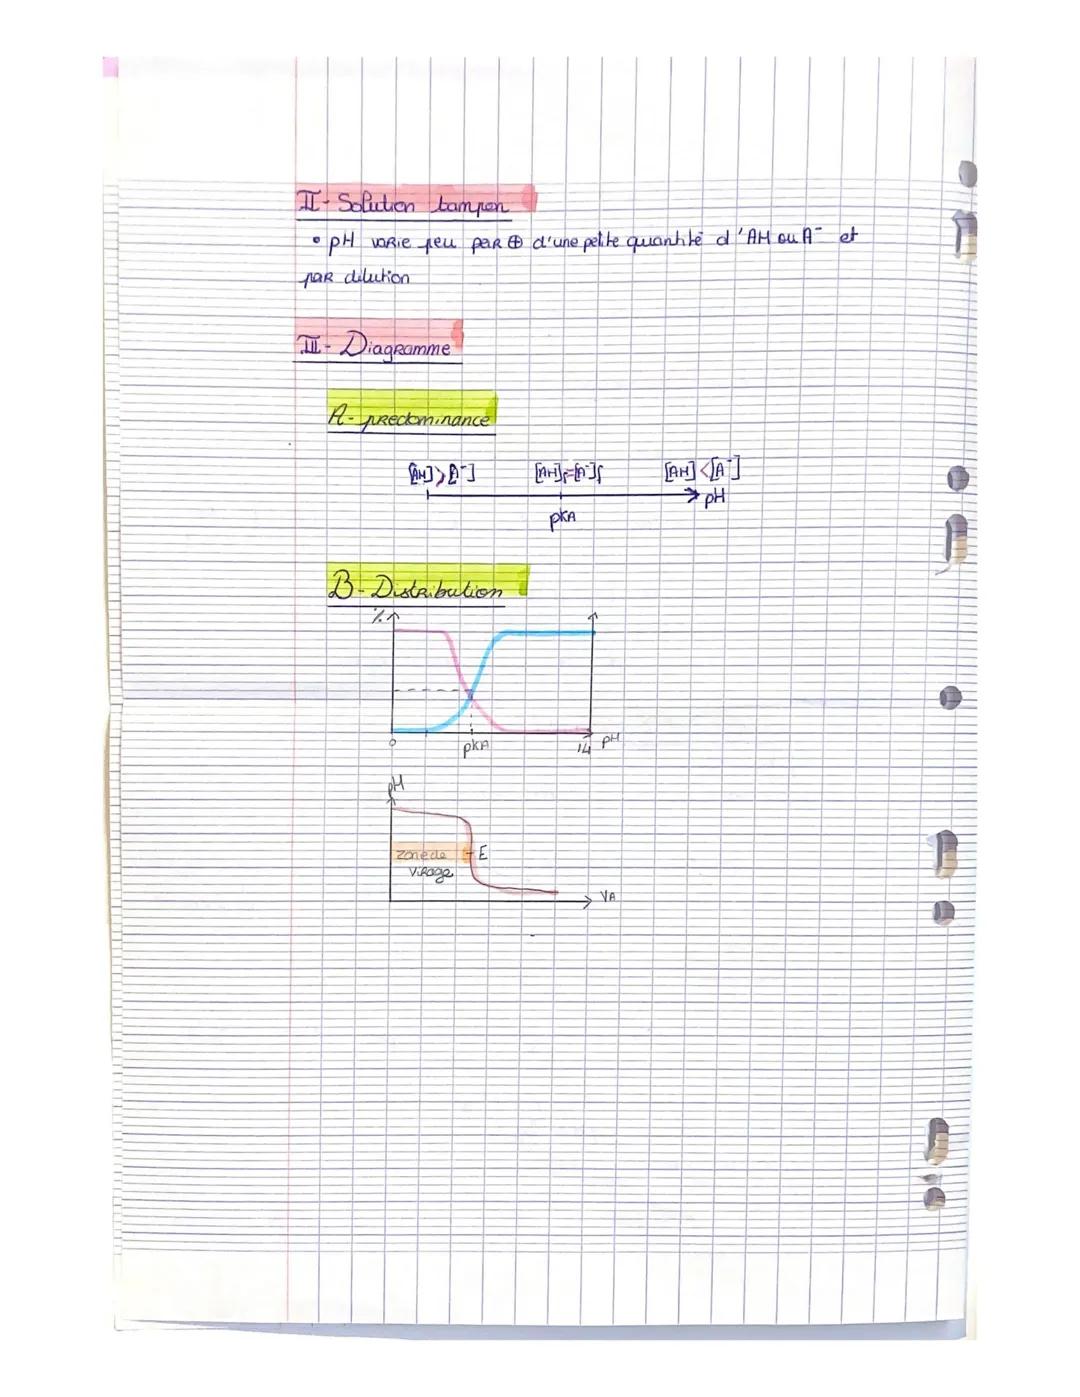 II- Solution tampon
• pH varie peu par ⊕ d'une petite quantité d'AH ou A⁻ et
par dilution
III- Diagramme
A- predominance
[AH]>[A⁻] [AH]f=[A⁻]f [AH]<[A⁻]
pH
pKA
B- Distribution
%
0 pKA 14 pH
pH
zone de E
virage
VA